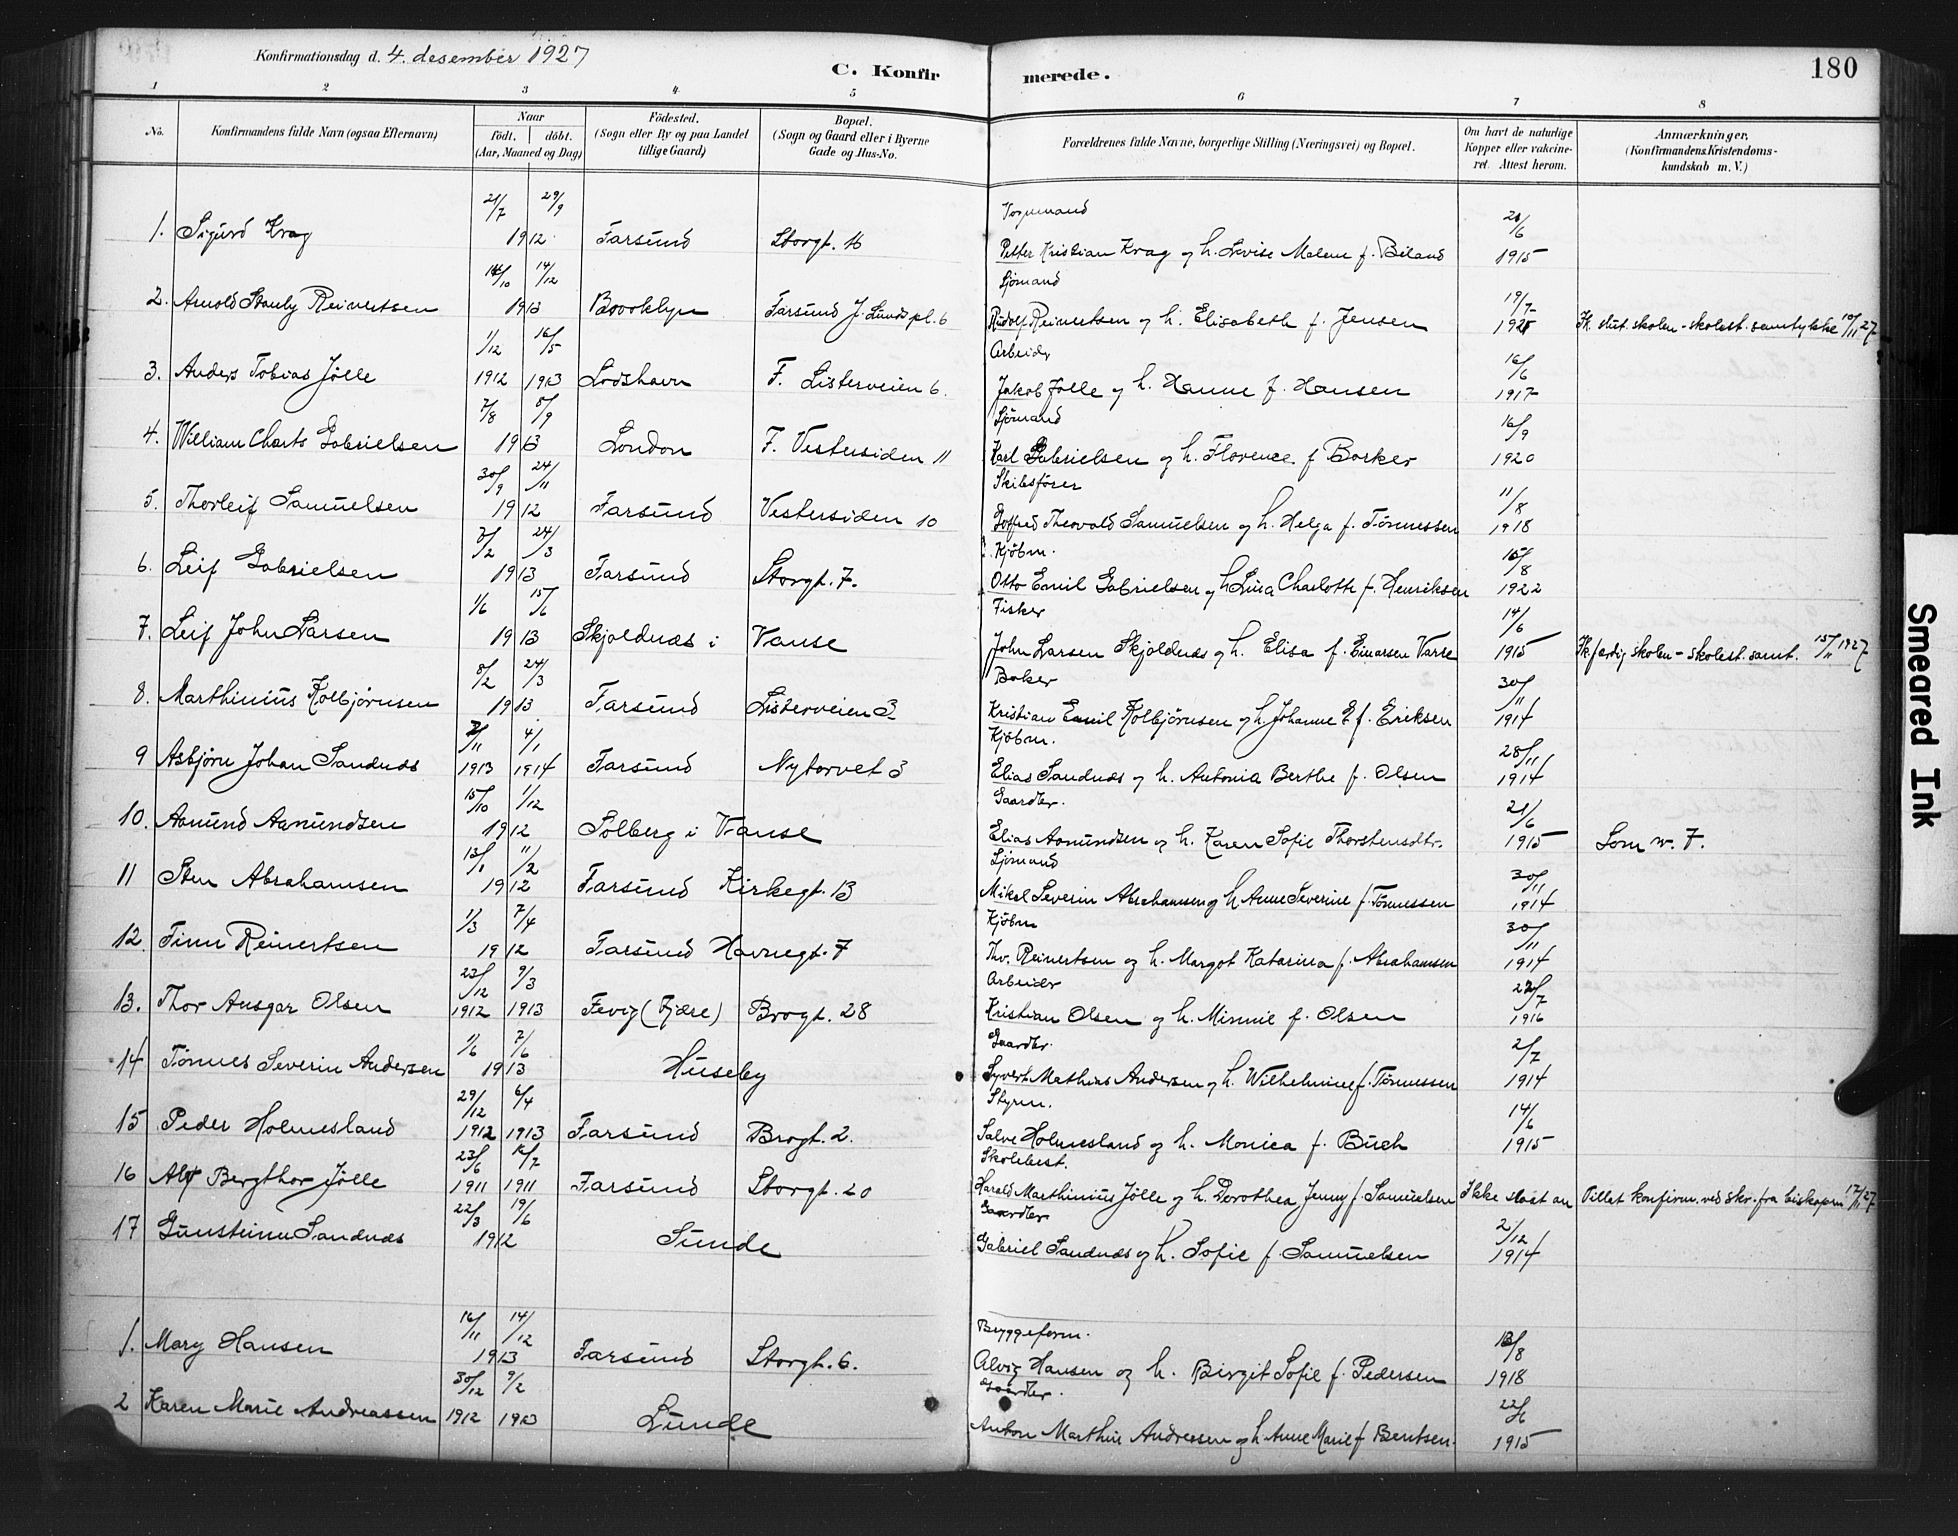 Konfirmationsdag d. 4. desember 1927
C. Konfirmerede.
180
1 2 3 4 5 6 7 8
No.
Konfirmandens fulde Navn (ogsaa Efternavn)
Naar
födt. döbt.
(Aar, Maaned og Dag)
Födested.
(Sogn eller By og paa Landet
tillige Gaard)
Bopæl.
(Sogn og Gaard eller i Byerne
Gade og Hus-No.
Forældrenes fulde Navne, borgerlige Stilling (Næringsvei) og Bopæl.
Om havt de naturlige
Kopper eller vakcine-
ret. Attest herom.
Anmærkninger,
(Konfirmandens Kristendoms-
kundskab m. V.)
21/7 29/9 Vognmand 21/6
1. Sigurd Krag 1912 Farsund Storgt. 16 Petter Kristian Krag og h. Lovise Malene f. Biland 1915
14/10 14/12 Sjömand 19/7
2. Arnold Stanly Reinertsen 1913 Brooklyn Farsund J. Lunds pl. 6 Rudolf Reinertsen og h. Elisabeth f. Jensen 1925 Ik. slut. skolen - skolest. samtykke 10/11 27
1/12 16/5 Arbeider 16/6
3. Anders Tobias Jölle 1912 1913 Lodshavn F. Listerveien 6. Jakob Jölle og h. Hanne f. Hansen 1917
7/8 5/9 Sjömand 16/9
4. William Charts Gabrielsen 1913 London F. Vestersiden 11 Karl Gabrielsen og h. Florence f. Barker 1920
30/9 24/11 Skibsförer 11/8
5. Thorleif Samuelsen 1912 Farsund Vestersiden 10 Gotfred Theovald Samuelsen og h. Helga f. Tönnessen 1918
3/2 24/3 Kjöbm. 15/8
6. Leif Gabrielsen 1913 Farsund Storgt. 7. Otto Emil Gabrielsen og h. Lina Charlotte f. Henriksen 1922
1/6 15/6 Fisker 14/6
7. Leif John Larsen 1913 Skjoldnæs i Vanse John Larsen Skjoldnæs og h. Elisa f. Einarsen Varre 1915 Ik. færdig skolen - skolest. samt. 15/11 1927
8/2 24/3 Baker 30/11
8. Marthinius Kolbjörnsen 1913 Farsund Listerveien 3 Kristian Emil Kolbjörnsen og h. Johanne E. f. Eriksen 1914
2/11 4/1 Kjöbm. 28/11
9 Asbjörn Johan Sandnæs 1913 1914 Farsund Nytorvet 3 Elias Sandnæs og h. Antonia Berthe f. Olsen 1914
15/10 1/12 Gaardbr. 21/6
10. Aamund Aamundsen 1912 Solberg i Vanse Elias Aamundsen og h. Karen Sofie Thorstensdtr. 1915 Som nr. 7.
13/1 11/2 Sjömand 30/11
11 Sten Abrahamsen 1912 Farsund Kirkegt. 13 Mikal Severin Abrahamsen og h. Anne Severine f. Tönnessen 1914
1/3 7/4 Kjöbm 30/11
12. Finn Reinertsen 1912 Farsund Havnegt. 7 Thv. Reinertsen og h. Margot Katarina f. Abrahamsen 1914
23/12 9/3 Arbeider 22/7
13. Thor Ansgar Olsen 1912 1913 Fevig (Fjære) Brogt. 28 Kristian Olsen og h. Minnie f. Olsen 1916
1/6 7/6 Gaardbr. 2/7
14 Tönnes Severin Andersen 1913 Huseby Syvert Mathias Andersen og h. Wilhelmine f. Tönnessen 1914
29/12 6/4 Styrm. 14/6
15 Peder Holmesland 1912 1913 Farsund Brogt. 2. Salve Holmesland og h. Monica f. Buch 1915
23/6 12/7 Skolebest.
16 Alf Bergthor Jölle 1911 1911 Farsund Storgt. 20 Harald Marthinius Jölle og h. Dorothea Jenny f. Samuelsen Ikke slaat an Tillat konfirm. ved skr. fra biskopen 17/11 27
22/3 19/6 Gaardbr 2/12
17 Gunsteinu Sandnæs 1912 Sunde Gabriel Sandnæs og h. Sofie f. Samuelsen 1914
16/11 14/12 Byggeform. 13/8
1. Mary Hansen 1913 Farsund Storgt. 6. Alvig Hansen og h. Birgit Sofie f. Pedersen 1918
30/12 9/2 Gaardbr. 22/6
2 Karen Marie Andreassen 1912 1913 Lunde Anton Marthin Andressen og h. Anne Marie f. Bentsen. 1915
Smeared Ink